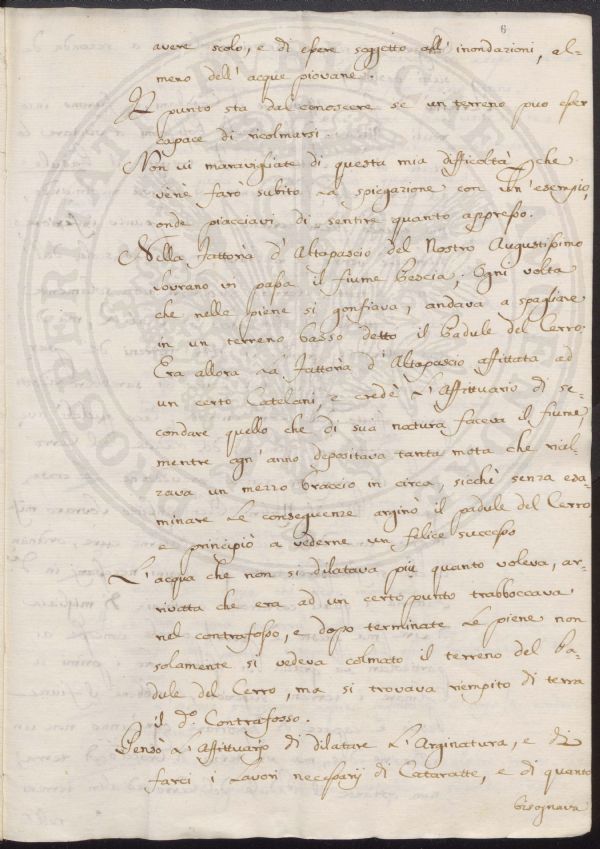 6
avere scolo, e di essere soggetto all' inondazioni, al=
meno dell' acque piovane.
Il punto sta dal conoscere se un terreno può esser
capace di ricolmarsi.
Non vi maravigliate di questa mia difficoltà che
venè farò subito la spiegazione con un' esempio,
onde piacciavi di sentire quanto appresso.
Nella Fattoria d' Altapascio del Nostro Augustissimo
Sovrano vi passa il fiume Pescia; Ogni volta
che nelle piene si gonfiava, andava a spagliare
in un terreno basso detto il Padule del Cerro;
Era allora la Fattoria d' Altapascio affittata ad
un certo Catelani, e credè l' Affittuario di se=
condare quello che di sua natura faceva il fiume,
mentre ogn' anno depositava tanta mota che rial=
zava un mezzo braccio in circa, sicchè senza esa=
minare le conseguenze arginò il padule del Cerro
e principiò a vederne un felice successo
L' acqua che non si dilatava più quanto voleva, ar=
rivata che era ad un certo punto traboccava
nel contrafosso, e dopo terminate le piene non
solamente si vedeva colmato il terreno del Pa=
dule del Cerro, ma si trovava riempito di terra
il d.º Contrafosso.
Pensò l' Affittuario di dilatare l' Arginatura, e di
farci i lavori necessarj di Cateratte, e di quanto
bisognava
PROSPERITATI PVBLICAE AVGENDAE